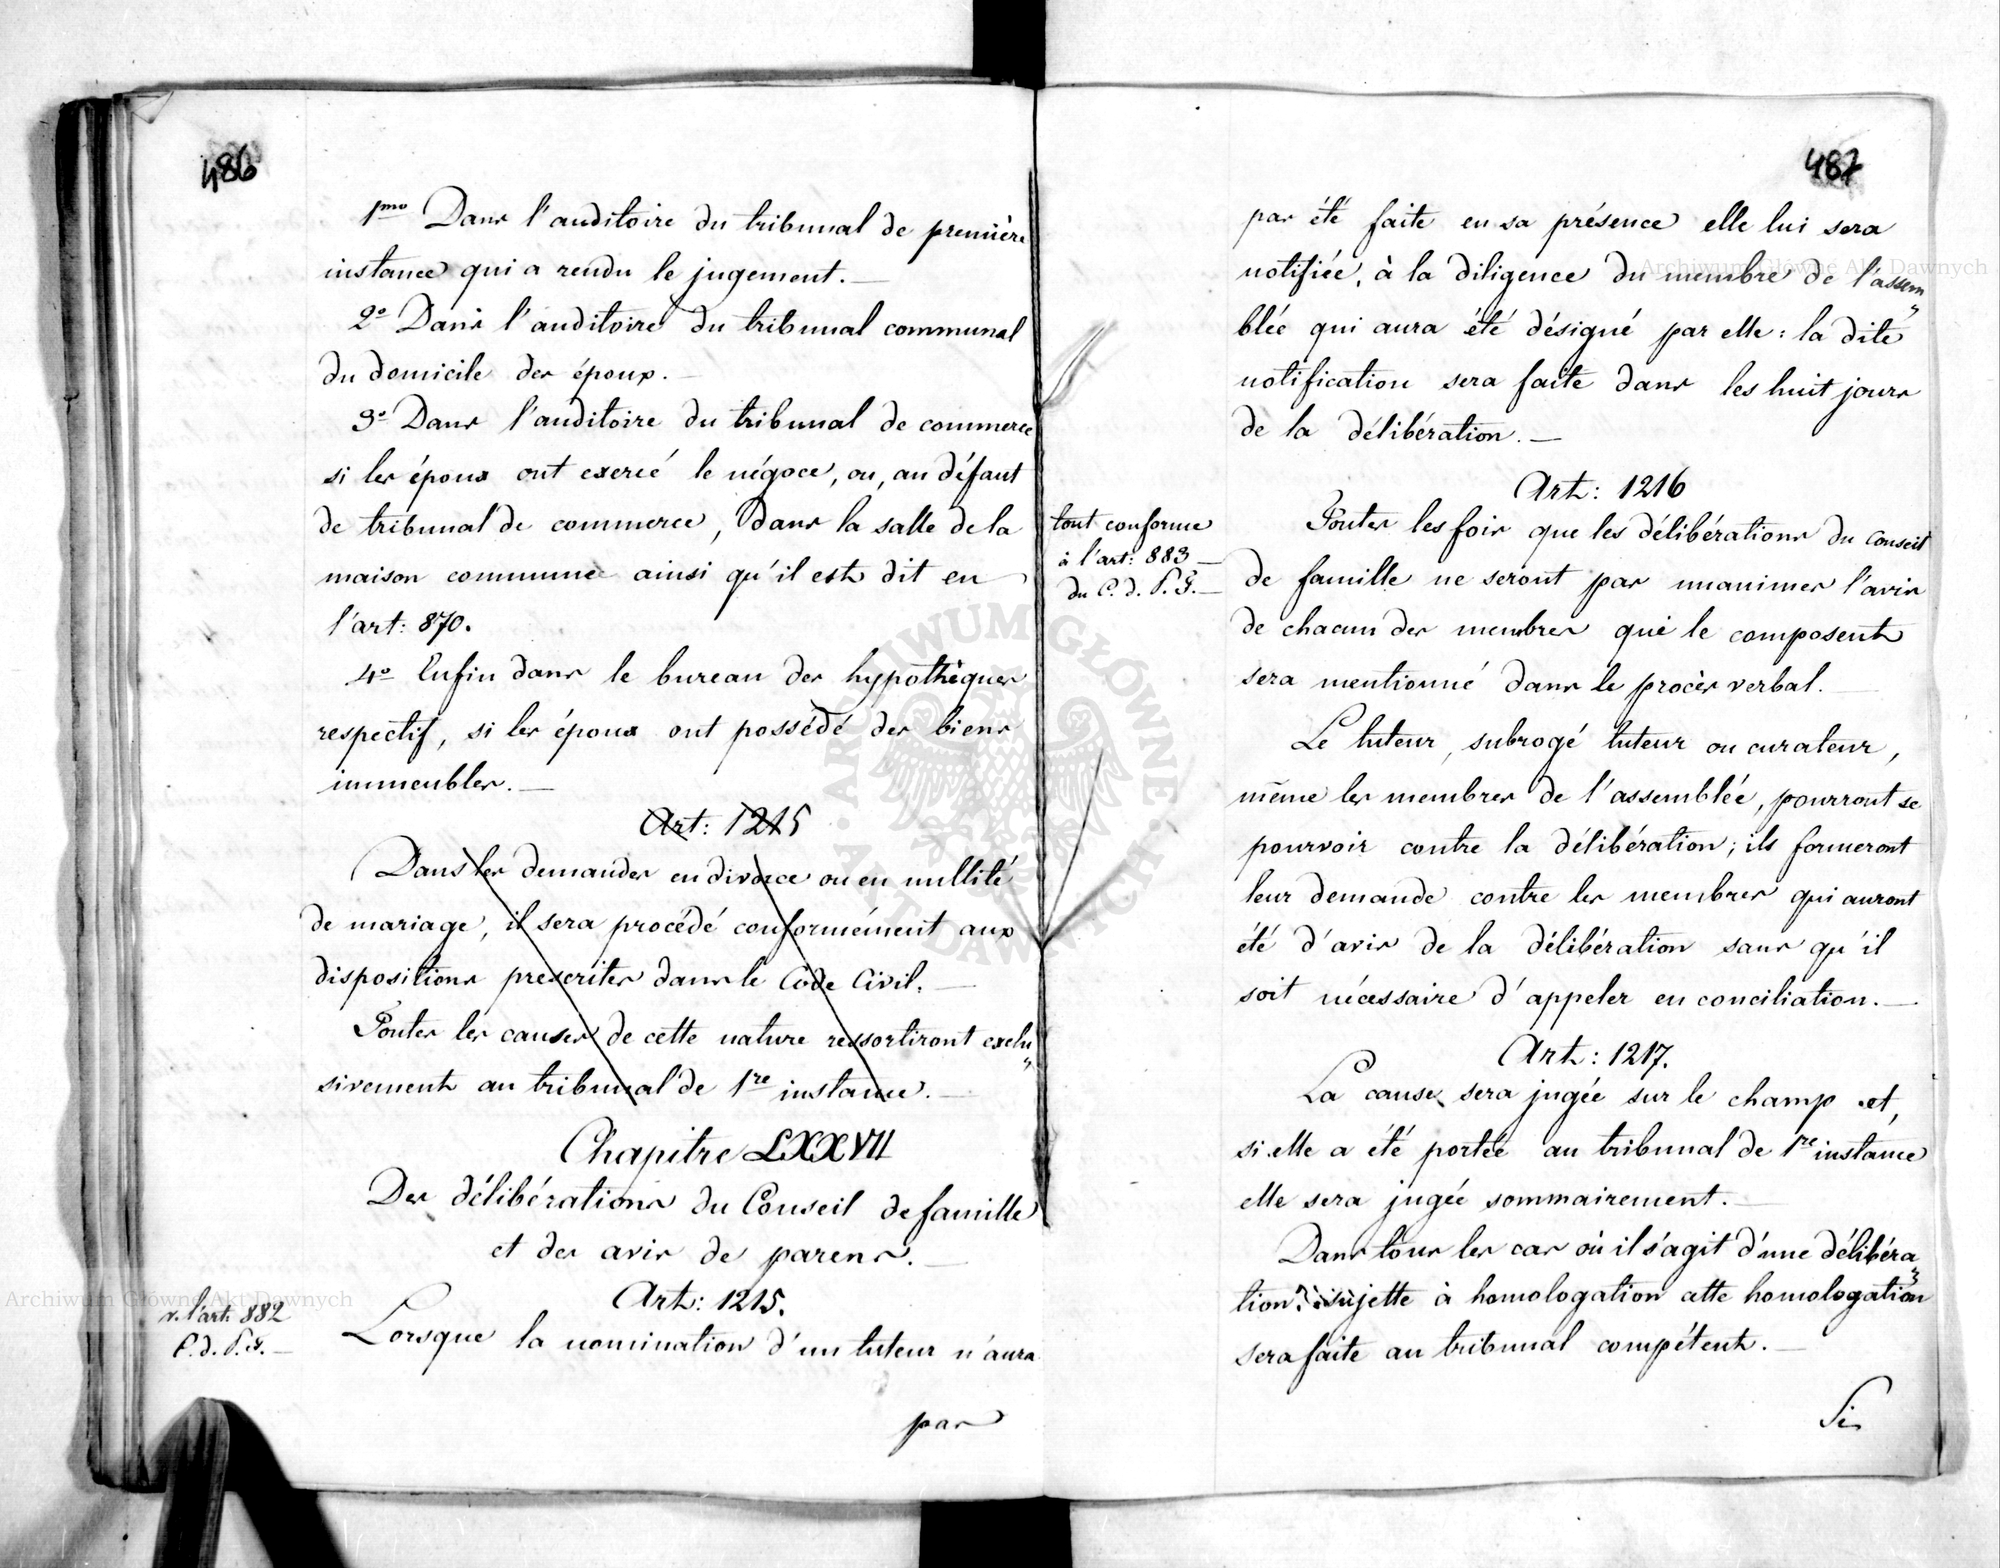 486
1mo Dans l'auditoire du tribunal de première
instance qui a rendu le jugement. —
2o Dans l'auditoire du tribunal communal
du domicile des époux. —
3o Dans l'auditoire du tribunal de commerce
si les époux ont exercé le négoce, ou, au défaut
de tribunal de commerce, dans la salle de la
maison commune ainsi qu'il est dit en
l'art: 870.
4o Enfin dans le bureau des hypothèques
respectif, si les époux ont possédé des biens
immeubles. —
Art: 1215
Dans les demandes en divorce ou en nullité
de mariage, il sera procédé conformément aux
dispositions prescrites dans le Code Civil. —
Toutes les causes de cette nature ressortiront exclu„
sivement au tribunal de 1re instance. —
Chapitre LXXVII
Des délibérations du Conseil de famille
et des avis de parens. —
Art: 1215.
v. l'art: 882
C. d. P. F. —
Lorsque la nomination d'un tuteur n'aura
pas
487
pas été faite en sa présence elle lui sera
notifiée, à la diligence du membre de l'assem„
blée qui aura été désigné par elle: la dite
notification sera faite dans les huit jours
de la délibération. —
Art: 1216
tout conforme
à l'art: 883 —
du C. d. P. F. —
Toutes les fois que les délibérations du Conseil
de famille ne seront pas unanimes l'avis
de chacun des membres qui le composent
sera mentionné dans le procès verbal. —
Le tuteur, subrogé tuteur ou curateur,
même les membres de l'assemblée, pourront se
pourvoir contre la délibération; ils formeront
leur demande contre les membres qui auront
été d'avis de la délibération sans qu'il
soit nécessaire d'appeler en conciliation. —
Art: 1217.
La cause sera jugée sur le champ et,
si elle a été portée au tribunal de 1re instance
elle sera jugée sommairement. —
Dans tous les cas où il s'agit d'une délibéra„
tion sujette à homologation cette homologation
sera faite au tribunal compétent. —
Si
Archiwum Główne Akt Dawnych
Archiwum Główne Akt Dawnych
ARCHIWUM GŁÓWNE AKT DAWNYCH